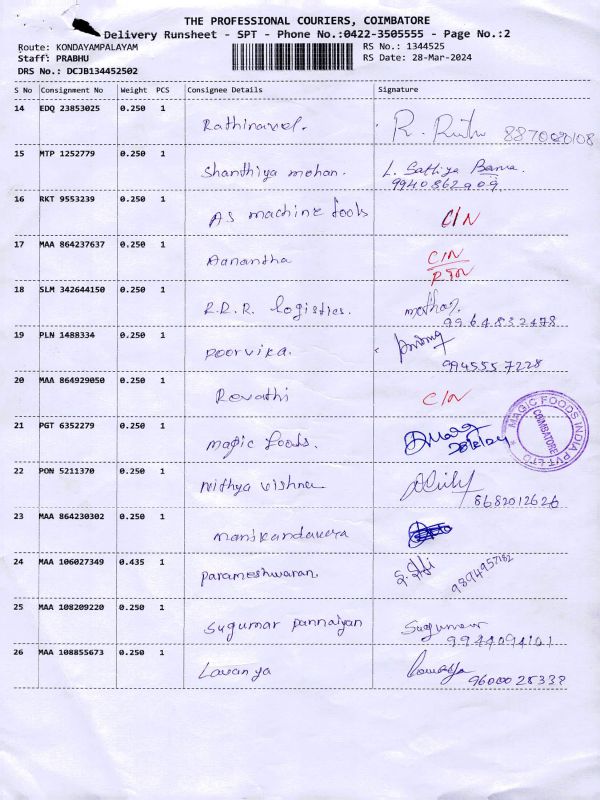 THE PROFESSIONAL COURIERS, COIMBATORE
Delivery Runsheet - SPT - Phone No.:0422-3505555 - Page No.:2
Route: KONDAYAMPALAYAM RS No.: 1344525
Staff: PRABHU RS Date: 28-Mar-2024
DRS No.: DCJB134452502
S No Consignment No Weight PCS Consignee Details Signature
14 EDQ 23853025 0.250 1
Rathinavel. R. Ruthu
15 MTP 1252779 0.250 1
Shanthiya mohan. L. Sathiya Bama.
9940862909
16 RKT 9553239 0.250 1
AS machine tools C/N
17 MAA 864237637 0.250 1
Aanantha C/N
RTN
18 SLM 342644150 0.250 1
R.D.R. logistics. mathan
9964832478
19 PLN 1488334 0.250 1
poorvika.
9945557228
20 MAA 864929050 0.250 1
Revathi C/N
21 PGT 6352279 0.250 1
magic foods.
MAGIC FOODS INDIA PVT LTD
COIMBATORE
22 PON 5211370 0.250 1
nithya vishnu
8682012626
23 MAA 864230302 0.250 1
24 MAA 106027349 0.435 1
parameshwaran. 9894957182
25 MAA 108209220 0.250 1
Sugumar pannaiyan Sugumar
9944094101
26 MAA 108855673 0.250 1
Lavanya